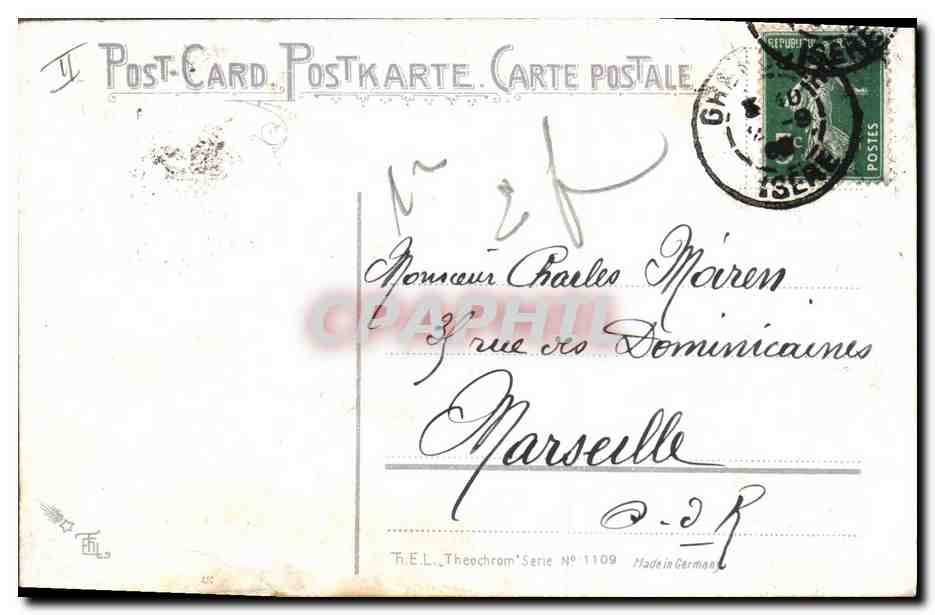 II
POST-CARD. POSTKARTE. CARTE POSTALE
ISERE
REPUBLIQUE
5 c
POSTES
ISERE
Monsieur Charles Moiren
35 rue des Dominicaines
Marseille
B-d R
CPAPHIL
Th.E.L. „Theochrom" Serie Nº 1109
Made in Germany